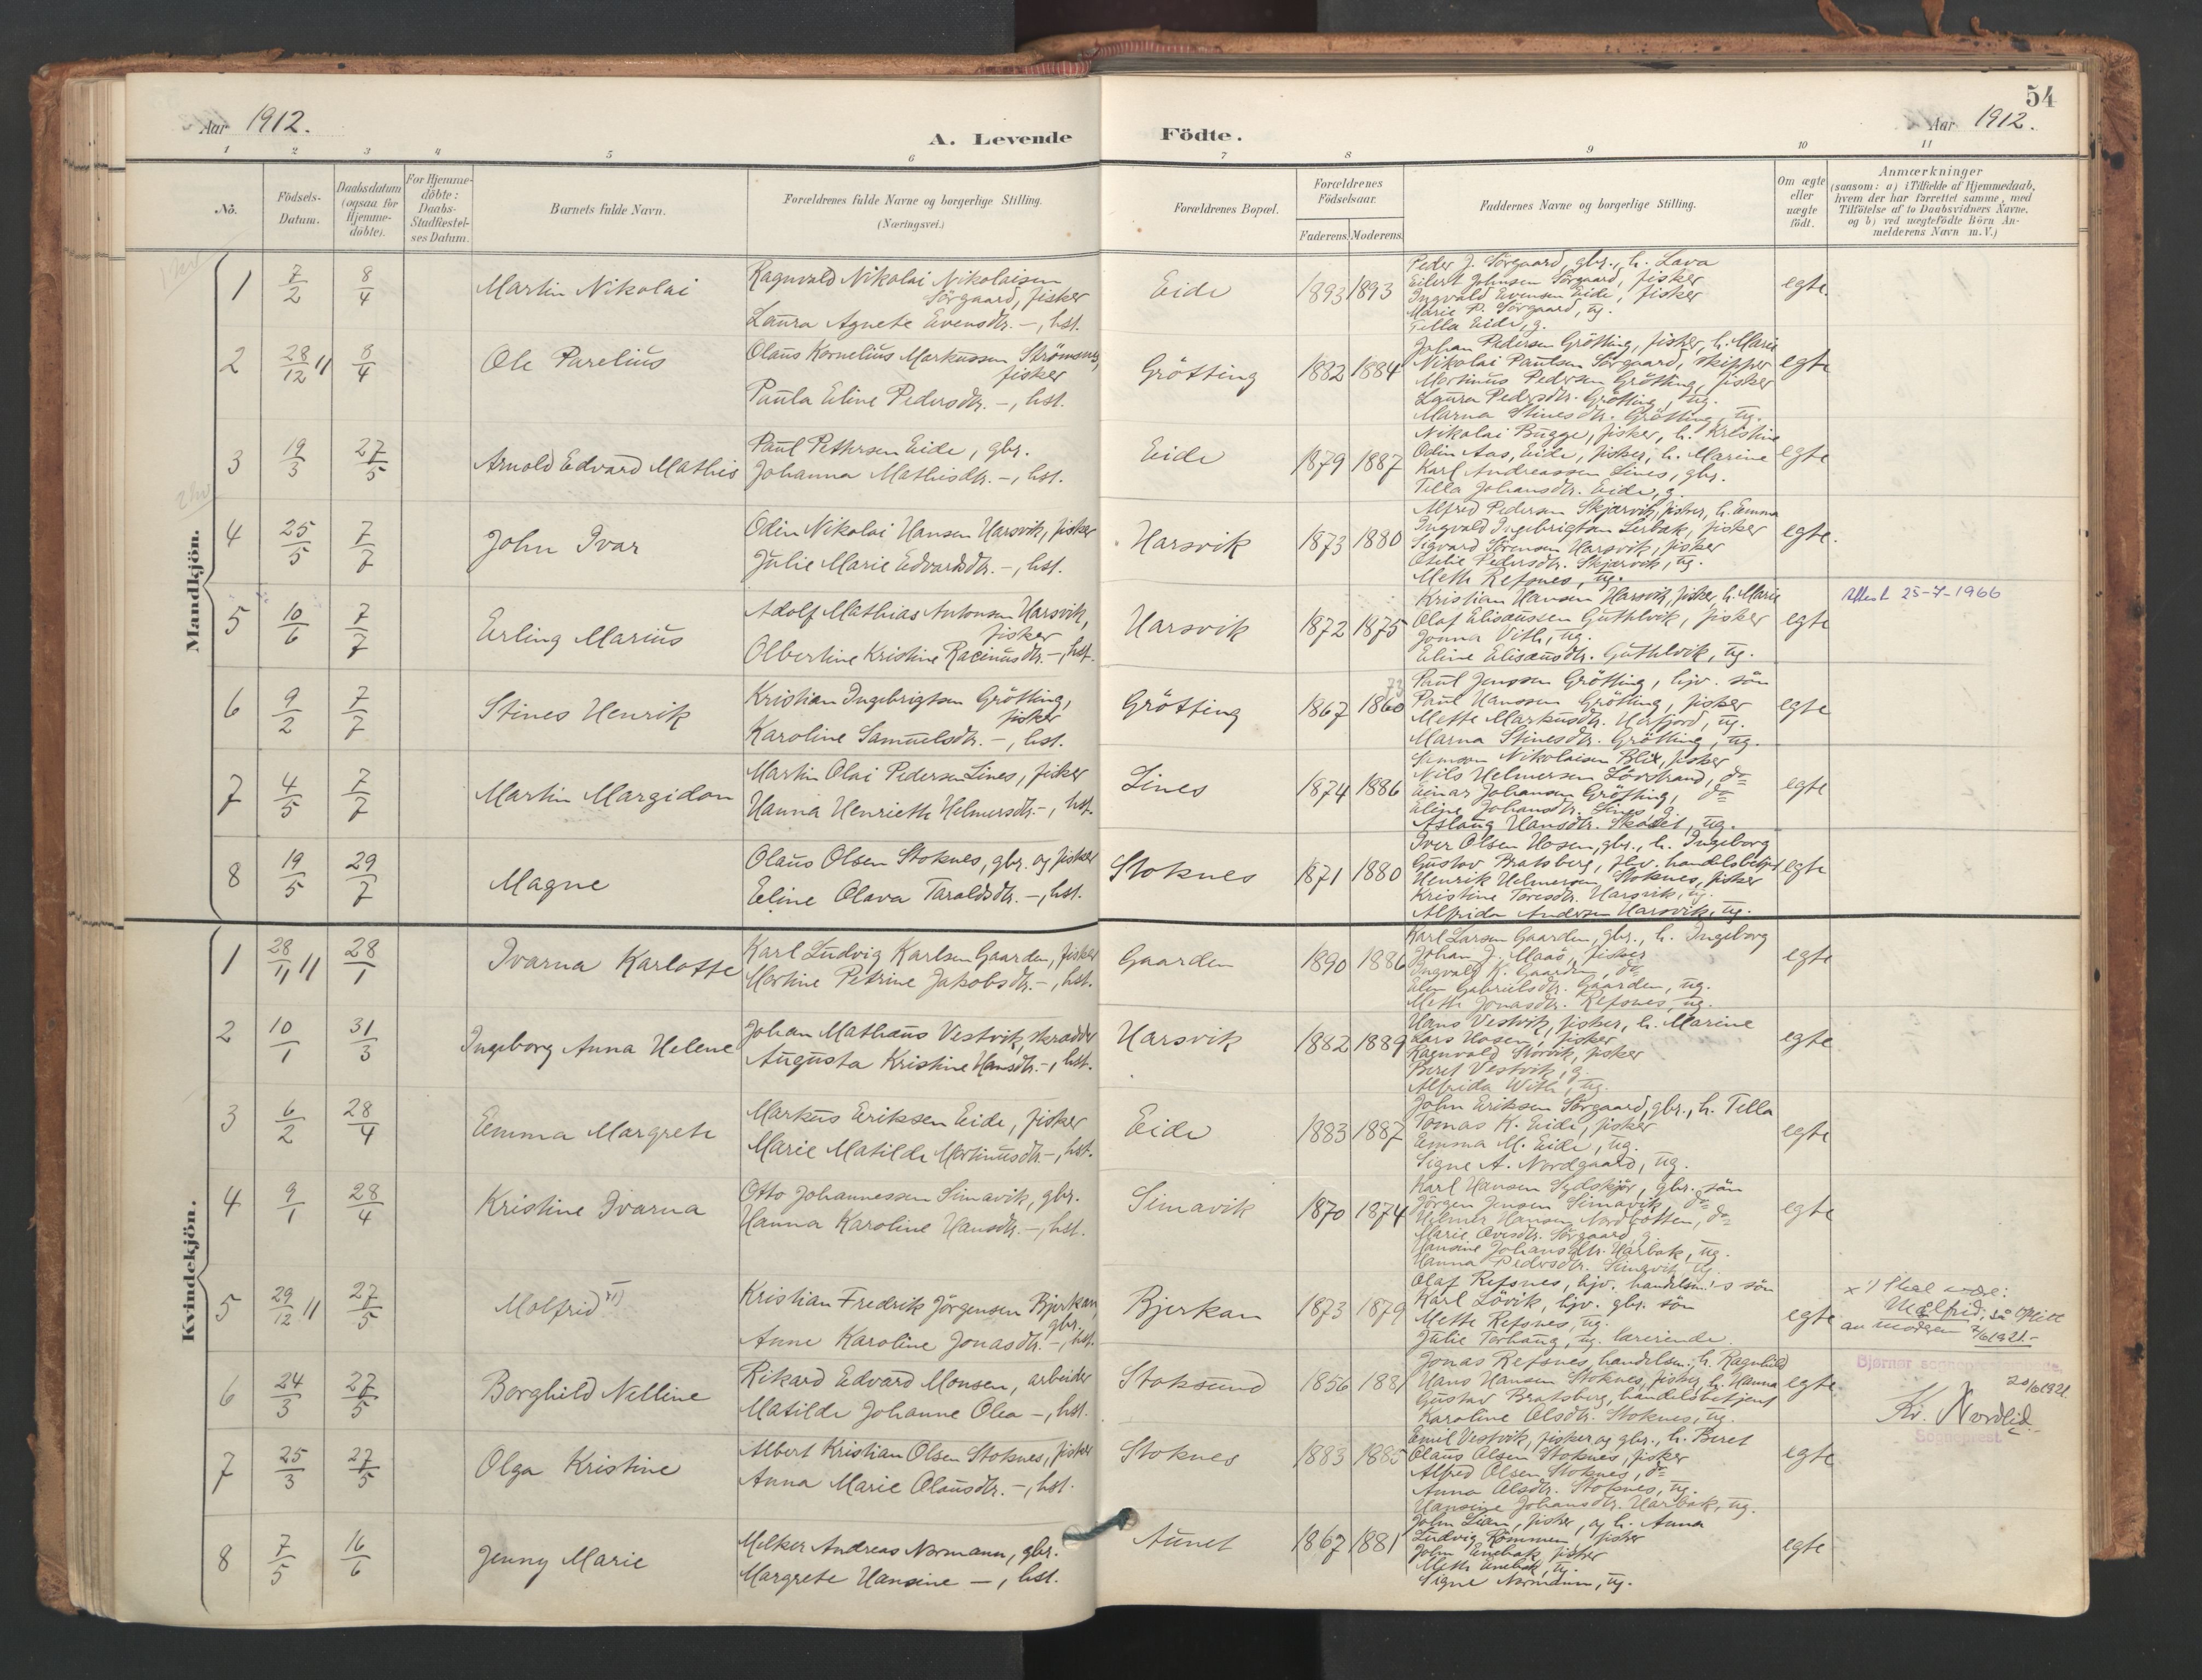 54
Aar 1912.
A. Levende Födte.
Aar 1912.
1 2 3 4 5 6 7 8 9 10 11
No.
Födsels-Datum.
Daabsdatum (ogsaa for Hjemme-döbte).
For Hjemme-döbte: Daabs-Stadfæstel-ses Datum.
Barnets fulde Navn.
Forældrenes fulde Navne og borgerlige Stilling.
(Næringsvei.)
Forældrenes Bopæl.
Forældrenes Födselsaar.
Faderens. Moderens.
Faddernes Navne og borgerlige Stilling.
Om ægte eller uægte födt.
Anmærkninger
(saasom: a) i Tilfælde af Hjemmedaab, hvem der har forrettet samme, med Tilföielse af to Daabsvidners Navne, og b) ved uægtefödte Börn An-melderens Navn m. V.)
Mandkjön.
1 7/2 8/4 Martin Nikolai
Ragnvald Nikolai Nikolaisen
Sörgaard, fisker
Laura Agnete Evensdtr. –, hst.
Eide 1893 1893
Peder J. Sörgaard, gbr., h. Lava
Eilert Johnsen Sörgaard, fisker
Ingvald Evensen Eide, fisker
Marie P. Sörgaard, ug.
Tella Eide, g.
egte.
2 28/12 11 8/4 Ole Parelius
Olaus Kornelius Markussen Strömsnes,
fisker
Paula Eline Pedersdtr. –, hst.
Grötting 1882 1884
Johan Pedersen Grötting, fisker, h. Marie
Nikolai Paulsen Sörgaard, skipper
Martinus Pedersen Grötting, fisker
Laura Pedersdtr. Grötting, ug.
Marna Stinesdtr. Grötting, ug.
egte
3 19/3 27/5 Arnold Edvard Mathis
Paul Pethrsen Eide, gbr.
Johanna Mathisdtr. –, hst.
Eide 1879 1887
Nikolai Bugge, fisker, h. Kristine
Odin Aas, Eide, fisker, h. Marine
Karl Andreassen Lines, gbr.
Tella Johansdtr. Eide, g.
egte
4 25/5 7/7 John Ivar
Odin Nikolai Hansen Harsvik, fisker
Julie Marie Edvardsdtr. –, hst.
Harsvik 1873 1880
Alfred Pedersen Skjærvik, fisker, h. Emma
Ingvald Ingebrigtsen Lerbak, fisker
Sigvard Sörensen Harsvik, fisker
Otelie Pedersdtr. Skjærvik, ug.
Meth Refsnes, ug.
egte.
5 10/6 7/7 Erling Marius
Adolf Mathias Antonsen Harsvik,
fisker
Olbertine Kristine Racinusdtr. –, hst.
Harsvik 1872 1875
Kristian Hansen Harsvik, fisker, h. Marie
Olaf Elisæussen Guthlvik, fisker
Jonna Vith, ug.
Eline Elisæusdtr. Guthlvik, ug.
egte
Attest 25-7-1966
6 9/2 7/7 Stines Henrik
Kristian Ingebrigtsen Grötting,
fisker
Karoline Samuelsdtr. –, hst.
Grötting 1867 1860 73
Paul Jenssen Grötting, hjv. sön
Paul Hanssen Grötting, fisker
Mette Markusdtr. Hofjord, ug.
Marna Stinesdtr. Grötting, ug.
egte
7 4/5 7/7 Martin Margidon
Martin Olai Pedersen Lines, fisker
Hanna Henrieth Helmersdtr. –, hst.
Lines 1874 1886
Simon Nikolaisen Blix, fisker
Nils Helmersen Lövstrand, do
Einar Johansen Grötting, do
Eline Johansdtr. Lines, g.
Aslaug Hansdtr. Skaset, ug.
egte
8 19/5 29/7 Magne
Olaus Olsen Stoknes, gbr. og fisker
Eline Olava Taraldsdtr. –, hst.
Stoknes 1871 1880
Iver Olsen Hosen, gbr., h. Ingeborg
Gustav Bratsberg, hjv. handelsbetjent
Henrik Helmersen Stoknes, fisker
Kristine Toresdtr. Harsvik, ug.
Alfrida Andersen Harsvik, ug.
egte
Kvindekjön.
1 28/11 11 28/1 Ivarna Karlotte
Karl Ludvig Karlsen Gaarden, fisker
Martine Petrine Jakobsdtr. –, hst.
Gaarden 1890 1886
Karl Larsen Gaarden, gbr., h. Ingeborg
Johan J. Maaö, fisker
Ingvald K. Gaarden, do
Elen Gabrielsdtr. Gaarden, ug.
Meth Jonasdtr. Refsnes, ug.
egte
2 10/1 31/3 Ingeborg Anna Helene
Johan Mathæus Vestvik, skrædder
Augusta Kristine Hansdtr. –, hst.
Harsvik 1882 1889
Hans Vestvik, fisker, h. Marine
Lars Hosen, fisker
Ragnvald Storvik, fisker
Beret Vestvik, g.
Alfrida With, ug.
egte
3 6/2 28/4 Emma Margrete
Markus Eriksen Eide, fisker
Marie Matilde Martinusdtr. –, hst.
Eide 1883 1887
John Eriksen Sörgaard, gbr., h. Tella
Tomas K. Eide, fisker
Emma M. Eide, ug.
Signe A. Nordgaard, ug.
egte
4 9/1 28/4 Kristine Ivarna
Otto Johannessen Simavik, gbr.
Hanna Karoline Hansdtr. –, hst.
Simavik 1870 1874
Karl Hansen Sydskjör, gbr. sön
Jörgen Jensen Simavik, do
Helmer Hansen Nordbotten, do
Marie Ovesdtr. Sörgaard, g.
Hansine Johansdtr. Harbak, ug.
Hanna Pedersdtr. Simavik, ug.
egte
5 29/12 11 27/5 Molfrid x1)
Kristian Fredrik Jörgensen Bjerkan,
gbr.
Anne Karoline Jonasdtr. –, hst.
Bjerkan 1873 1879
Olaf Refsnes, hjv. handelsm.'s sön
Karl Lövik, hjv. gbr. sön
Meth Refsnes, ug.
Julie Torhaug, ug. lærerinde.
egte
x1) Skal være:
Malfrid,
av moderen 7/6 1921.–
Bjørnør
20/6 1921.
Kr. Nordlid
Sogneprest
6 24/3 27/5 Borghild Nelline
Rikard Edvard Monsen, arbeider
Matilde Johanne Olea –, hst.
Stoksund 1856 1881
Jonas Refsnes, handelsm., h. Ragnhild
Hans Hansen Stoknes, fisker, h. Hanna
Gustav Bratsberg, handelsbetjent
Karoline Olsdtr. Stoknes, ug.
egte
7 25/3 27/5 Olga Kristine
Albert Kristian Olsen Stoknes, fisker
Anna Marie Olausdtr. –, hst.
Stoknes 1883 1885
Emil Vestvik, fisker og gbr., h. Beret
Olaus Olsen Stoknes, fisker
Alfred Olsen Stoknes, do
Anna Olsdtr. Stoknes, ug.
Hansine Johansdtr. Harbak, ug.
egte
8 7/5 16/6 Jenny Marie
Melker Andreas Normann, gbr.
Margrete Hansine –, hst.
Aunet 1867 1881
John Lian, fisker, og h. Anna
Ludvig Römmen, fisker
John Enebak, fisker
Meth Enebak, ug.
Signe Normann, ug.
egte